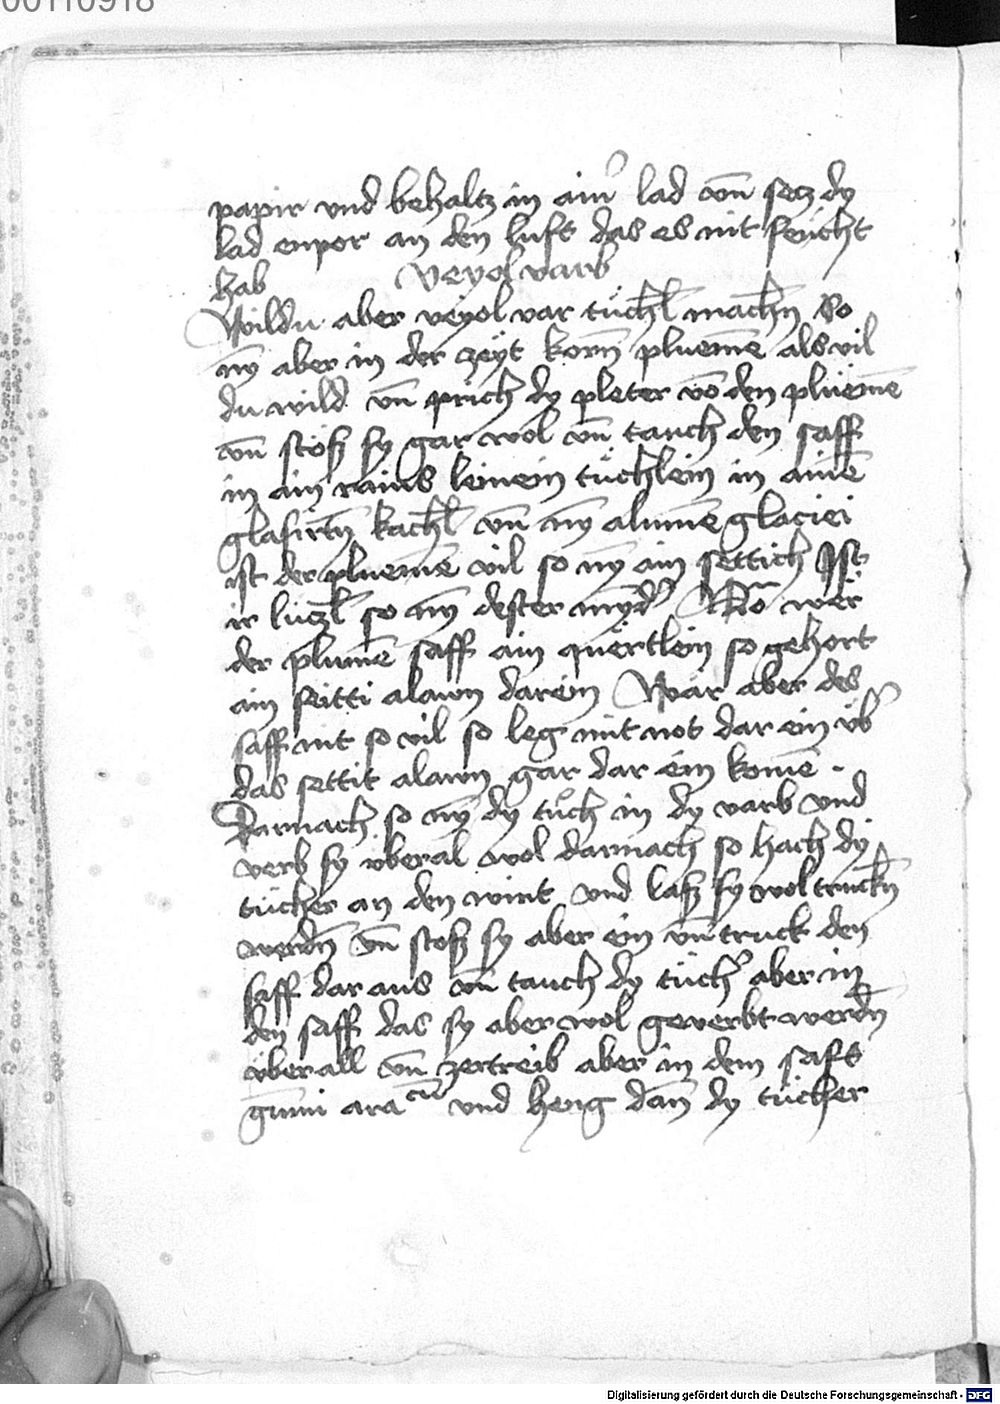 00110918
papir vnd behaltz in ainr lad vnd secz dy
lad enpor an den luft das es nit feücht
hab Veyol varb
Wildu aber veyol var tüchl̄ machn̄ So
ny aber in der zeyt korn̄ pluemē als vil
du wild vn̄ prich dy pleter vō den pluemē
vn̄ stoß sy gar wol vn̄ tauch den saff
in ain rains leinein tüchlein in ainē
glasirtn̄ kachl̄ vn̄ ny alumē glaciei
ist der pluemē vil so ny ain settich Ist
ir luczl̄ so ny dester mynd' wer
der plumē saff ain quertlein so gehort
ain seitti alawn darein Wär aber des
saff nit so vil so leg nit not dar ein üb'
das settit alawn gar dar ein komē
Darnach so ny dy tuch in dy varb vnd
verb sy vberal wol darnach so hach dy
tücher an den wint vnd laß sy wol truckn̄
werdn̄ vn̄ stoß sy aber ein vn̄ truck den
saff dar aus vn̄ tauch dy tüch' aber in
den saff das sy aber wol geverbt werdn̄
überall vn̄ zertreib aber in dem saft
gūmi aracū vnd heng dan̄ dy tücher
Digitalisierung gefördert durch die Deutsche Forschungsgemeinschaft - DFG